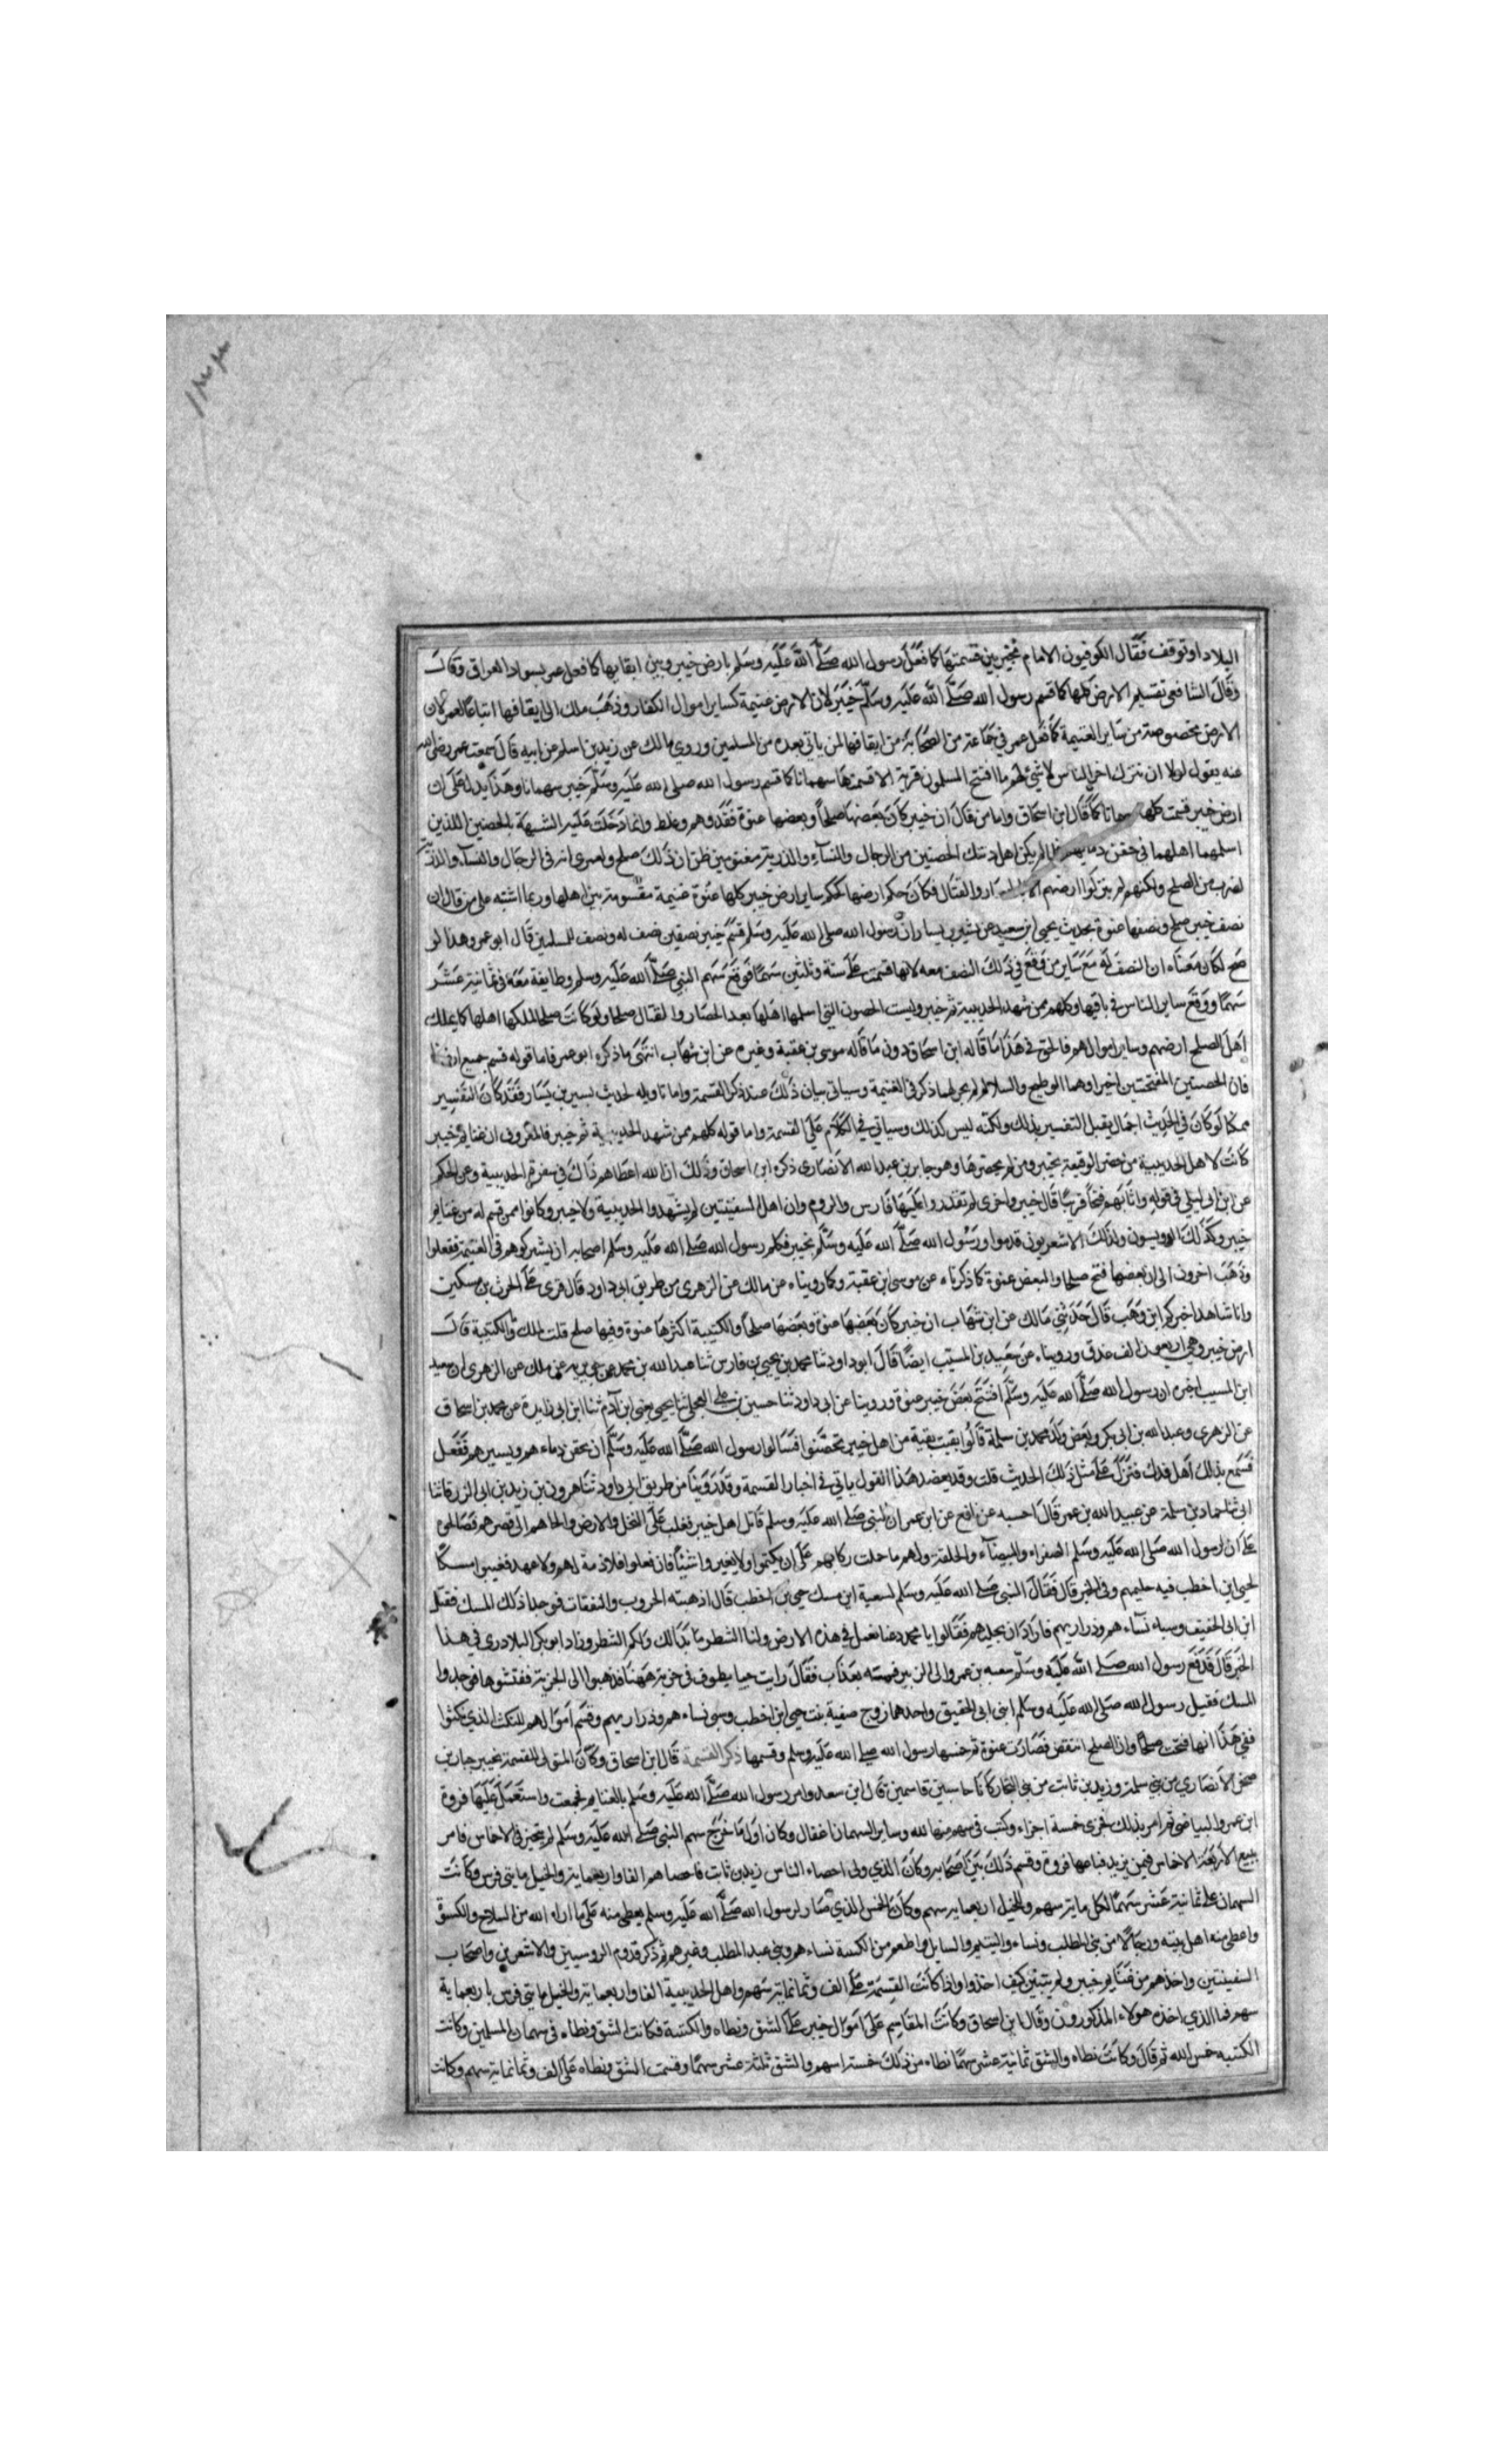 البلاد او توقف فقال الكوفيون الامام مخير بين قسمتها كما فعل رسول الله صلى الله عليه وسلم بارض خيبر وبين ابقايها كما فعل عمر بسواد العراق وقال
وقال الشافعي تقسيم الارض كلها كما قسم رسول الله صلى الله عليه وسلم خيبر لان الارض غنيمة كساير اموال الكفار وذهب ملك الى ايقافها اتباعا لعمر لان
الارض مخصوصة من ساير الغنيمة كما فعل عمر في جماعة من الصحابة من ايقافها لمن ياتي بعده من المسلمين وروي مالك عن زيد بن اسلم عن ابيه قال سمعت عمر رضي الله
عنه يقول لولا ان نترك اخر الناس لا شي لهم ما افتتح المسلمون قرية الا قسمتها سهمانا كما قسم رسول الله صلى الله عليه وسلم خيبر سهمانا وهذا يدل على ان
ارض خيبر قسمت كلها سهمانا كما قال ابن اسحاق واما من قال ان خيبر كان بعضها صلحا وبعضها عنوة فقد وهم وغلط وانما دخلت عليه الشبهة بالحصنين اللذين
اسلمهما اهلهما في حقن دمايهم فلما لم يكن اهل ذينك الحصنين من الرجال والنساء والذرية مغنومين ظن ان ذلك صلح ولعمري انه في الرجال والنساء والذرية
لضرب من الصلح ولكنهم لم يتركوا ارضهم الا بالحصار والقتال فكان حكم ارضها كحكم ساير ارض خيبر كلها عنوة غنيمة مقسومة بين اهلها وربما اشتبه على من قال ان
نصف خيبر صلح ونصفها عنوة بحديث يحيى ابن سعيد عن بشير بن يسار ان رسول الله صلى الله عليه وسلم قسم خيبر نصفين نصف له ونصف للمسلمين قال ابو عمر وهذا لو
صح لكان معناه ان النصف له مع ساير من وقع في ذلك النصف معه لانها قسمت على ستة وثلثين سهما فوقع سهم النبي صلى الله عليه وسلم وطايفة معه في ثمانية عشر
سهما ووقع ساير الناس في باقيها وكلهم ممن شهد الحديبية ثم خيبر وليست الحصون التي اسلمها اهلها بعد الحصار والقتال صلحا ولو كانت صلحا لملكها اهلها كما يملك
اهل الصلح ارضهم وساير اموالهم فالحق في هذا ما قاله ابن اسحاق دون ما قاله موسى بن عقبة وغيره عن ابن شهاب انتهى ما ذكره ابو عمر فاما قوله قسم جميع ارضها
فان الحصنين المفتتحين اخيرا وهما الوطيح والسلالم لم يجر لهما ذكر في الغنيمة وسياتي بيان ذلك عند ذكر القسمة واما تاويله لحديث بسير بن يسار فقد كان التفسير
ممكنا لو كان في الحديث اجمال يقبل التفسير بذلك ولكنه ليس كذلك وسياتي في الكلام على القسمة واما قوله كلهم ممن شهد الحديبية ثم خيبر فالمعروف ان غنايم خيبر
كانت لاهل الحديبية من حضر الوقيعة بخيبر ومن لم يحضرها وهو جابر بن عبد الله الانصاري ذكره ابن اسحاق وذلك ان الله اعطاهم ذاك في سفرة الحديبية وعن الحكم
عن ابن ابي ليلى في قوله واثابهم فتحا قريبا قال خيبر واخرى لم تقدروا عليها فارس والروم وان اهل السفينتين لم يشهدوا الحديبية ولا خيبر وكانوا ممن قسم له من غنايم
خيبر وكذلك الدوسيون وكذلك الاشعريون قدموا ورسول الله صلى الله عليه وسلم بخيبر فكلم رسول الله صلى الله عليه وسلم اصحابه ان يشركوهم في الغنيمة ففعلوا
وذهب اخرون الى ان بعضها فتح صلحا والبعض عنوة كما ذكرناه عن موسى ابن عقبة وكما رويناه عن مالك عن الزهري من طريق ابي داود قال قرئ على الحرث بن مسكين
وانا شاهد اخبركم ابن وهب قال حدثني مالك عن ابن شهاب ان خيبر كان بعضها عنوة وبعضها صلحا والكتيبة اكثرها عنوة وفيها صلح قلت لملك والكتيبة قال
ارض خيبر وهي اربعون الف عذق ورويناه عن سعيد بن المسيب ايضا قال ابو داود ثنا محمد بن يحيى بن فارس ثنا عبد الله بن محمد عن جويريه عن ملك عن الزهري ان سعيد
ابن المسيب اخبره ان رسول الله صلى الله عليه وسلم افتتح بعض خيبر عنوة وروينا عن ابي داود ثنا حسين بن علي العجلي ثنا يحيى يعني ابن آدم ثنا ابن ابي زايدة عن محمد بن اسحاق
عن الزهري وعبد الله بن ابي بكر وبعض ولد محمد بن سلمة قالوا بقيت بقية من اهل خيبر تحصنوا فسالوا رسول الله صلى الله عليه وسلم ان يحقن دماءهم ويسيرهم ففعل
فسمع بذلك اهل فدك فنزلوا على مثل ذلك الحديث قلت وقد يعضد هذا القول ياتي في اخبار القسمة وقد روينا من طريق ابي داود ثنا هرون بن زيد بن ابي الزرقا ثنا
ابي ثنا حماد بن سلمة عن عبيد الله بن عمر قال احسبه عن نافع عن ابن عمر ان النبي صلى الله عليه وسلم قاتل اهل خيبر فغلب على النخل والارض والجاهم الى قصرهم فصالحوه
على ان لرسول الله صلى الله عليه وسلم الصفراء والبيضاء والحلقة ولهم ما حملت ركابهم على ان يكتموا ولا يغيبوا شيئا فان فعلوا فلا ذمة لهم ولا عهد فغيبوا مسكا
لحيي ابن اخطب فيه حليهم وفي الخبر قال فقال النبي صلى الله عليه وسلم لسعية اين مسك حيي بن اخطب قال اذهبته الحروب والنفقات فوجدا ذلك المسك فقتل
ابن ابي الحقيق وسبا نساءهم وذراريهم فاراد ان يجليهم فقالوا يا محمد دعنا نعمل في هذه الارض ولنا الشطر ما بدا لك ولكم الشطر وزاد ابو بكر البلاذري في هذا
الخبر قال فدفع رسول الله صلى الله عليه وسلم سعيه بن عمرو الى الزبير فمسه بعذاب فقال رايت حييا يطوف في خربة ههنا فذهبوا الى الخربة ففتشوها فوجدوا
المسك فقتل رسول الله صلى الله عليه وسلم ابني ابي الحقيق واحدهما زوج صفية بنت حيي ابن اخطب وسبى نساءهم وذراريهم وقسم اموالهم للنكث الذي نكثوا
ففي هذا انها فتحت صلحا وان الصلح انتقض فصارت عنوة ثم خمسها رسول الله صلى الله عليه وسلم وقسمها ذكر القسمة قال ابن اسحاق وكان المتولي للقسمة بخيبر جبار بن
صخر الانصاري من بني سلمة وزيد بن ثابت من بني النجار كانا حاسبين قاسمين قال ابن سعد وامر رسول الله صلى الله عليه وسلم بالغنايم فجمعت واستعمل عليها فروة
ابن عمرو البياضي ثم امر بذلك فجزى خمسة اجزاء وكتب في سهم منها لله وساير السهمان اغفال وكان اول ما خرج سهم النبي صلى الله عليه وسلم لم يتخير في الاخماس فامر
ببيع الاربعة الاخماس فيمن يزيد فباعها فروة وقسم ذلك بين اصحابه وكان الذي ولى احصاء الناس زيد بن ثابت فاحصاهم الفا واربعماية والخيل مايتي فرس وكانت
السهمان على ثمانية عشر سهما لكل ماية سهم وللخيل اربعماية سهم وكان الخمس الذي صار لرسول الله صلى الله عليه وسلم يعطي منه على ما اراه الله من السلاح والكسوة
واعطى منه اهل بيته ورجالا من بني المطلب ونساء واليتيم والسايل واطعم من الكتيبة نساءهم وبني عبد المطلب وغيرهم ثم ذكر قدوم الدوسيين والاشعريين واصحاب
السفينتين واخذهم من غنايم خيبر ولم يتبين كيف اخذوا واذا كانت القسمة على الف وثمانماية سهم واهل الحديبية الفا واربعماية والخيل مايتي فرس باربعماية
سهم فما الذي اخذه هولاء المذكورون وقال ابن اسحاق وكانت المقاسم على اموال خيبر على الشق ونطاه والكتيبة فكانت الشق ونطاه في سهمان المسلمين وكانت
الكتيبه خمس الله ثم قال وكانت نطاه والشق ثمانية عشر سهما نطاه من ذلك خمسة اسهم والشق ثلثة عشر سهما وقسمت الشق ونطاه على الف وثمانماية سهم وكانت